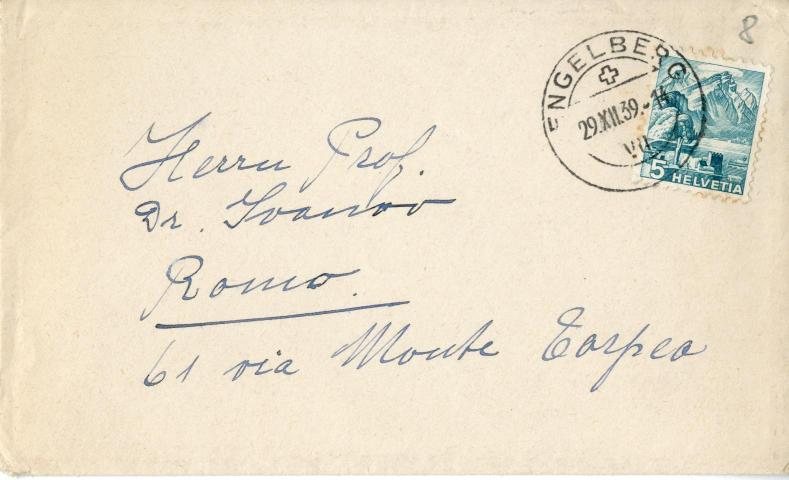 8
ENGELBERG
29.XII.39.-14
VII
5 HELVETIA
Herrn Prof.
Dr. Ivanov
Roma.
61 via Monte Tarpeo